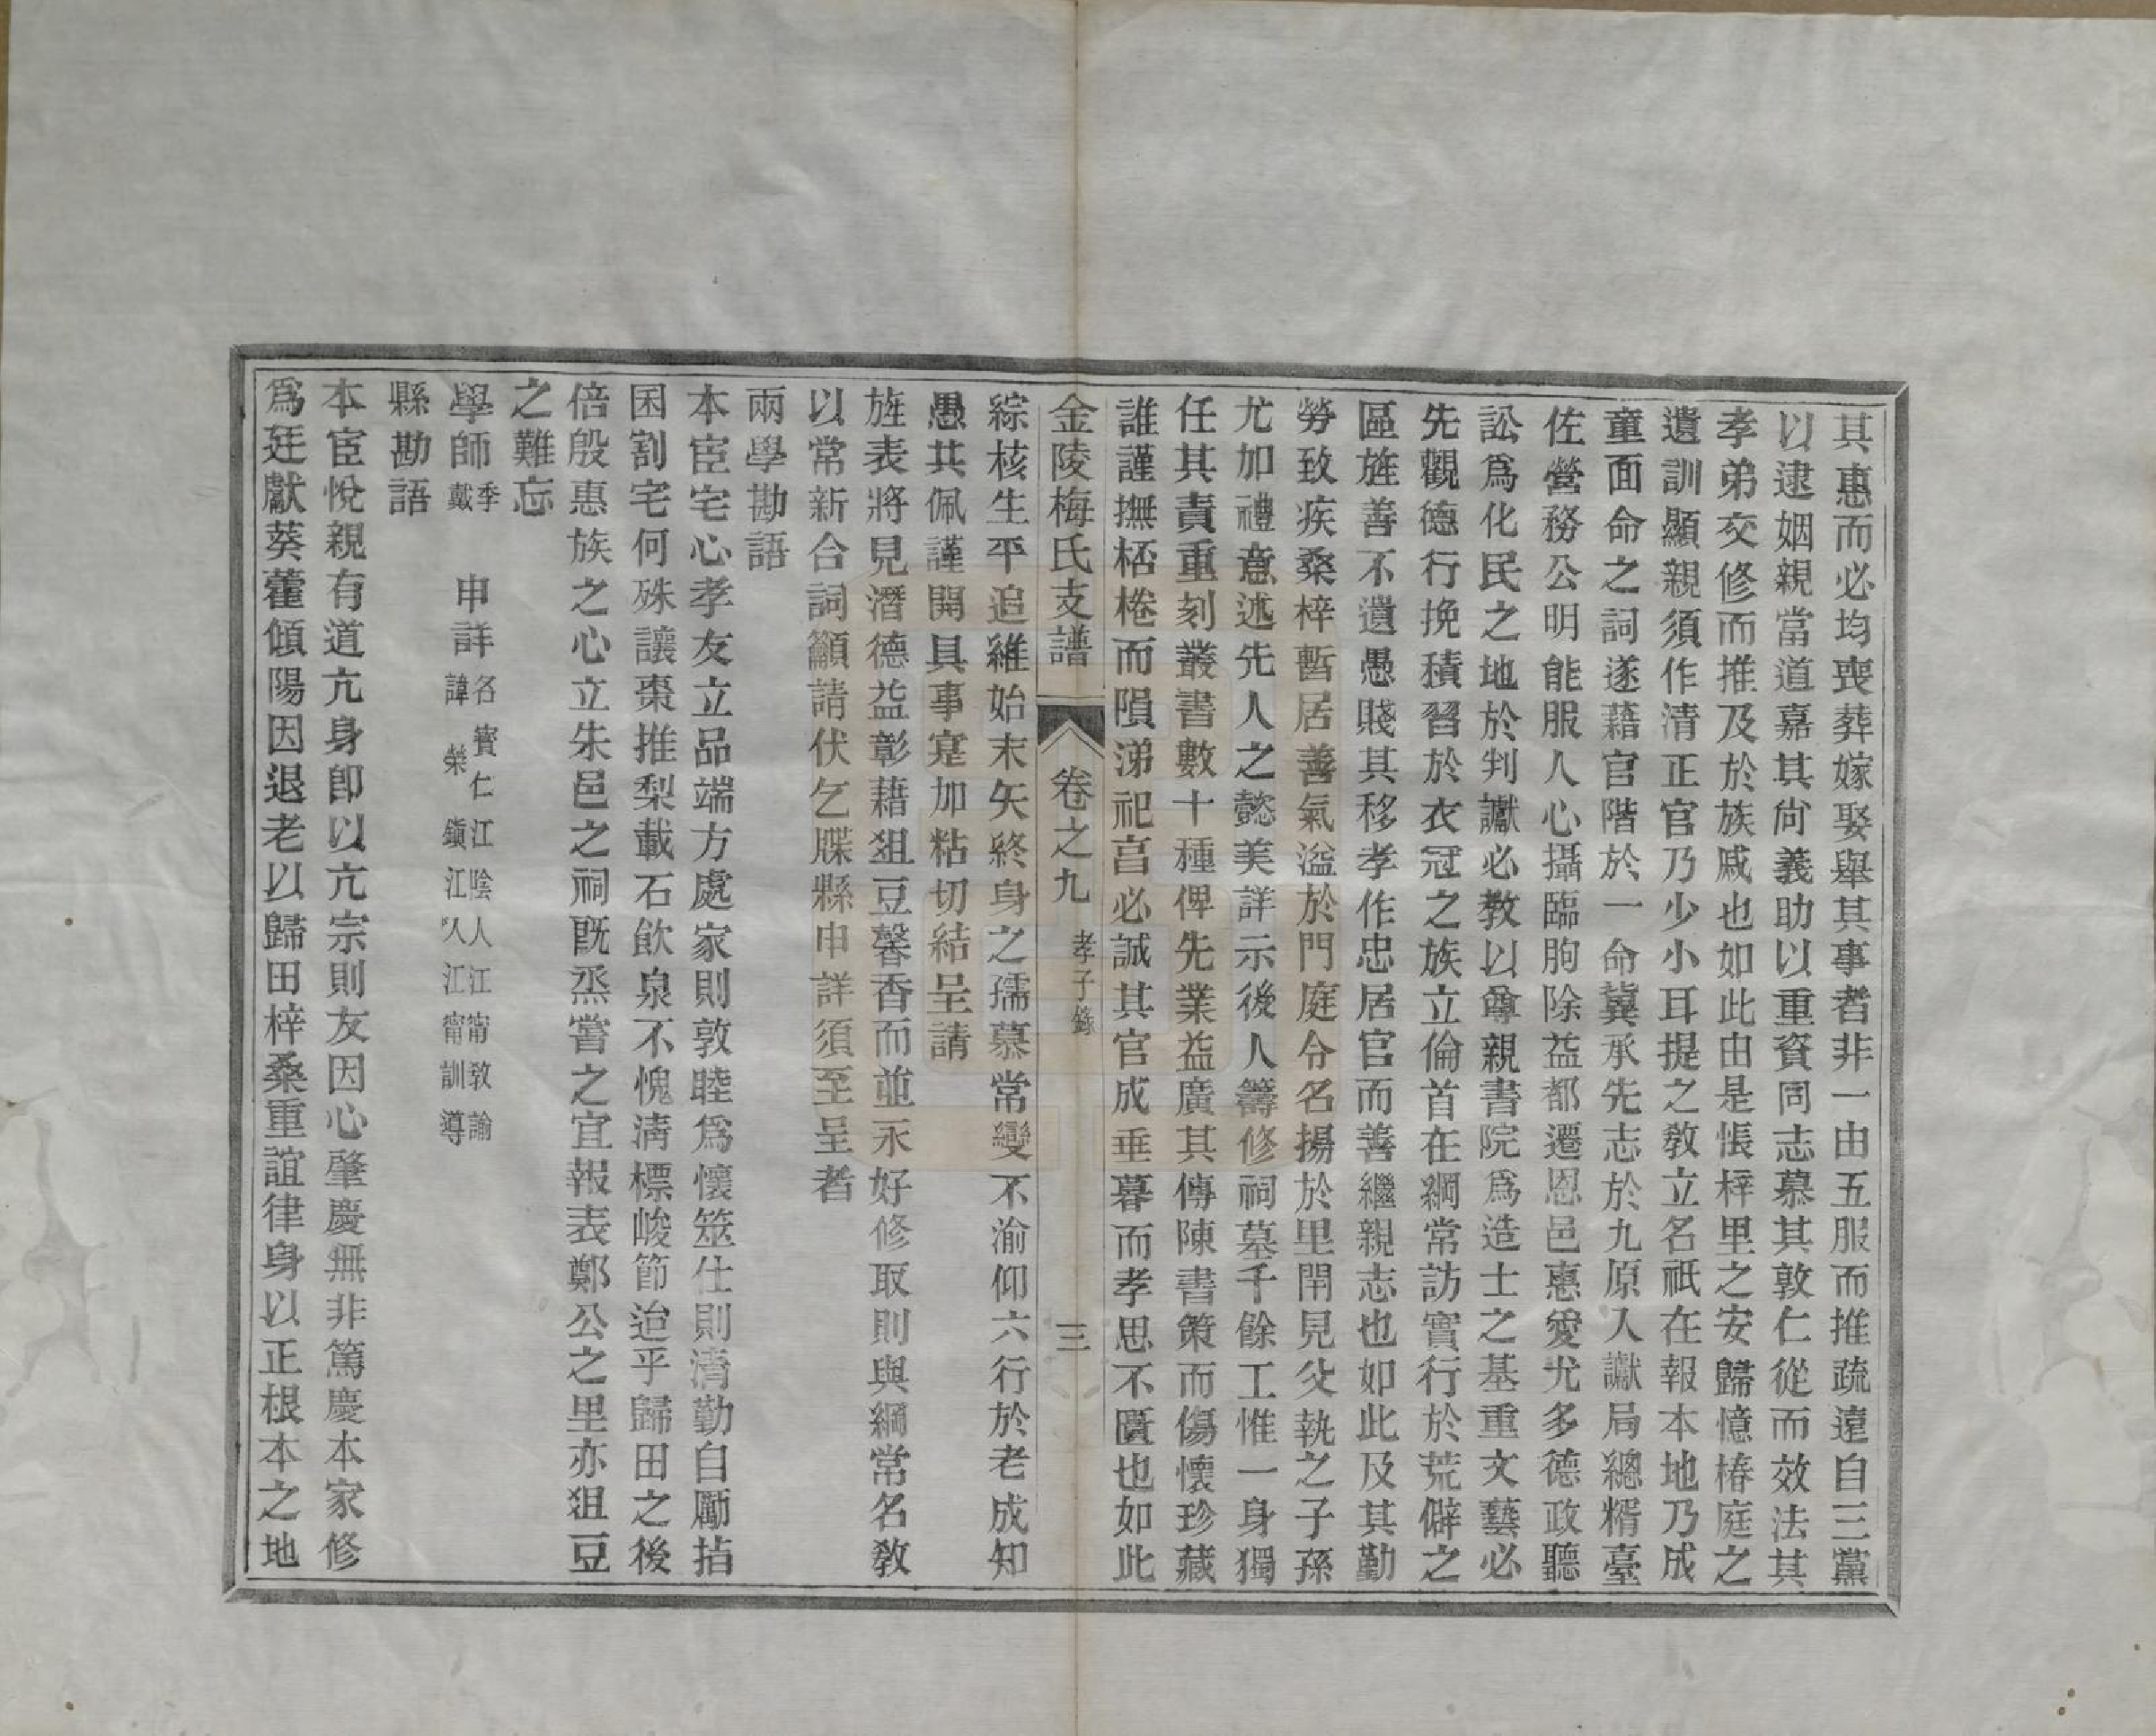 其惠而必均喪葬嫁娶舉其事者非一由五服而推疏遠自三黨
以逮姻親當道嘉其尙義助以重資同志慕其敦仁從而效法其
孝弟交修而推及於族戚也如此由是悵梓里之安歸憶椿庭之
遺訓顯親須作清正官乃少小耳提之敎立名祇在報本地乃成
童面命之詞遂藉官階於一命冀承先志於九原入讞局總糈臺
佐營務公明能服人心攝臨朐除益都遷恩邑惠愛尤多德政聽
訟爲化民之地於判讞必教以尊親書院爲造士之基重文藝必
先觀德行挽積習於衣冠之族立倫首在綱常訪實行於荒僻之
區旌善不遺愚賤其移孝作忠居官而善繼親志也如此及其勤
勞致疾桑梓暫居善氣溢於門庭令名揚於里閈見父執之子孫
尤加禮意述先人之懿美詳示後人籌修祠墓千餘工惟一身獨
任其責重刻叢書數十種俾先業益廣其傳陳書策而傷懷珍藏
誰謹撫桮棬而隕涕祀亯必誠其官成垂暮而孝思不匱也如此
金陵梅氏支譜 卷之九 孝子錄 三
綜核生平追維始末矢終身之孺慕常變不渝仰六行於老成知
愚共佩謹開具事寔加粘切結呈請
旌表將見潛德益彰藉俎豆馨香而並永好修取則與綱常名敎
以常新合詞籲請伏乞牒縣申詳須至呈者
兩學勘語
本宦宅心孝友立品端方處家則敦睦爲懷筮仕則清勤自勵指
囷割宅何殊讓棗推梨載石飲泉不愧淸標峻節迨乎歸田之後
倍殷惠族之心立朱邑之祠旣烝嘗之宜報表鄭公之里亦俎豆
之難忘
學師季戴 申詳名諱寶仁榮江陰人江甯敎諭鎭江人江甯訓導
縣勘語
本宦悅親有道亢身卽以亢宗則友因心肇慶無非篤慶本家修
爲廷獻葵藿傾陽因退老以歸田梓桑重誼律身以正根本之地